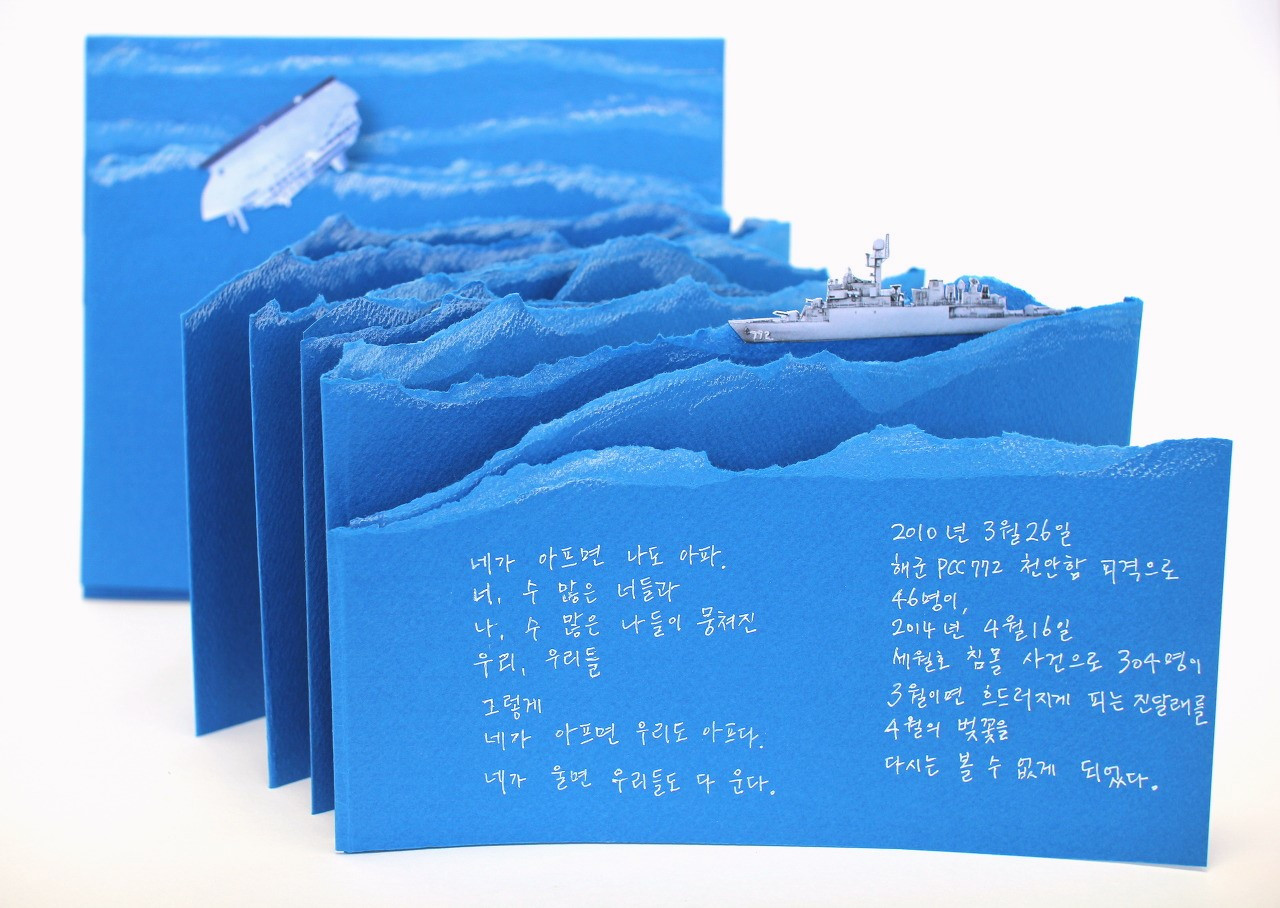 네가 아프면 나도 아파.
너, 수 많은 너들과
나, 수 많은 나들이 뭉쳐진
우리, 우리들
그렇게
네가 아프면 우리도 아프다.
네가 울면 우리들도 다 운다.
2010년 3월26일
해군 PCC772 천안함 피격으로
46명이,
2014년 4월16일
세월호 침몰 사건으로 304명이
3월이면 흐드러지게 피는 진달래를
4월의 벚꽃을
다시는 볼 수 없게 되었다.
772